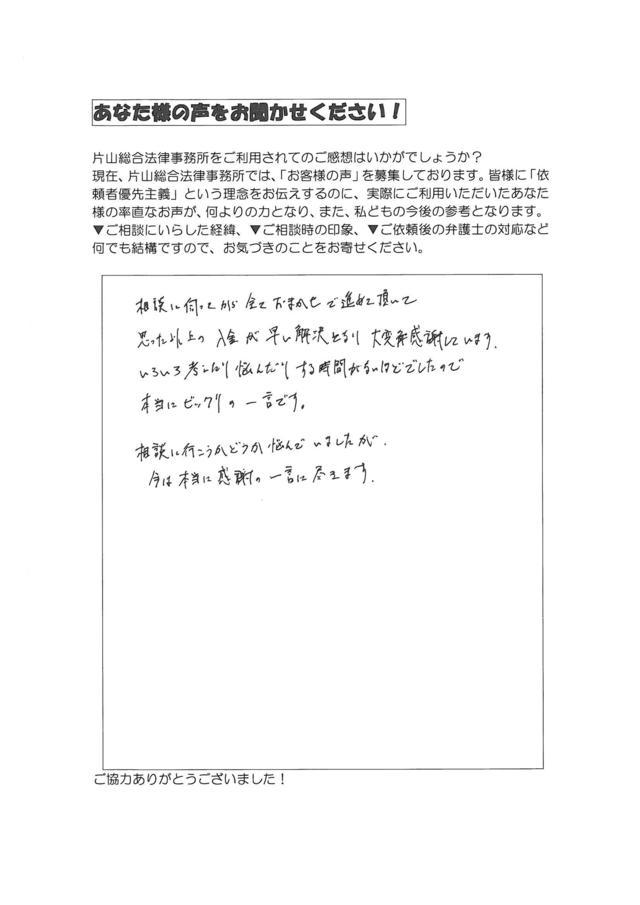 あなた様の声をお聞かせください！
片山総合法律事務所をご利用されてのご感想はいかがでしょうか？
現在、片山総合法律事務所では、「お客様の声」を募集しております。皆様に「依
頼者優先主義」という理念をお伝えするのに、実際にご利用いただいたあなた
様の率直なお声が、何よりの力となり、また、私どもの今後の参考となります。
▼ご相談にいらした経緯、▼ご相談時の印象、▼ご依頼後の弁護士の対応など
何でも結構ですので、お気づきのことをお寄せください。
相談に伺ってから全ておまかせで進めて頂いて
思った以上の入金が早い解決となり大変感謝しています。
いろいろ考えたり悩んだりする時間がないほどでしたので
本当にビックリの一言です。
相談に行こうかどうか悩んでいましたが、
今は本当に感謝の一言に尽きます。
ご協力ありがとうございました！